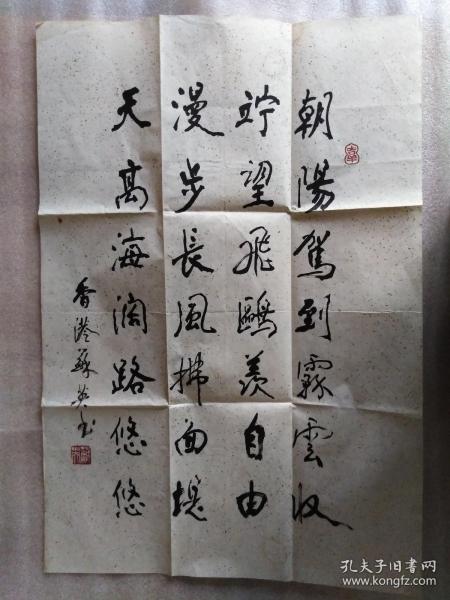 朝陽駕到霧雲收
竚望飛鷗羨自由
漫步長風拂面
天高海濶路悠悠
香港蘇英书
孔夫子旧书网
www.kongfz.com